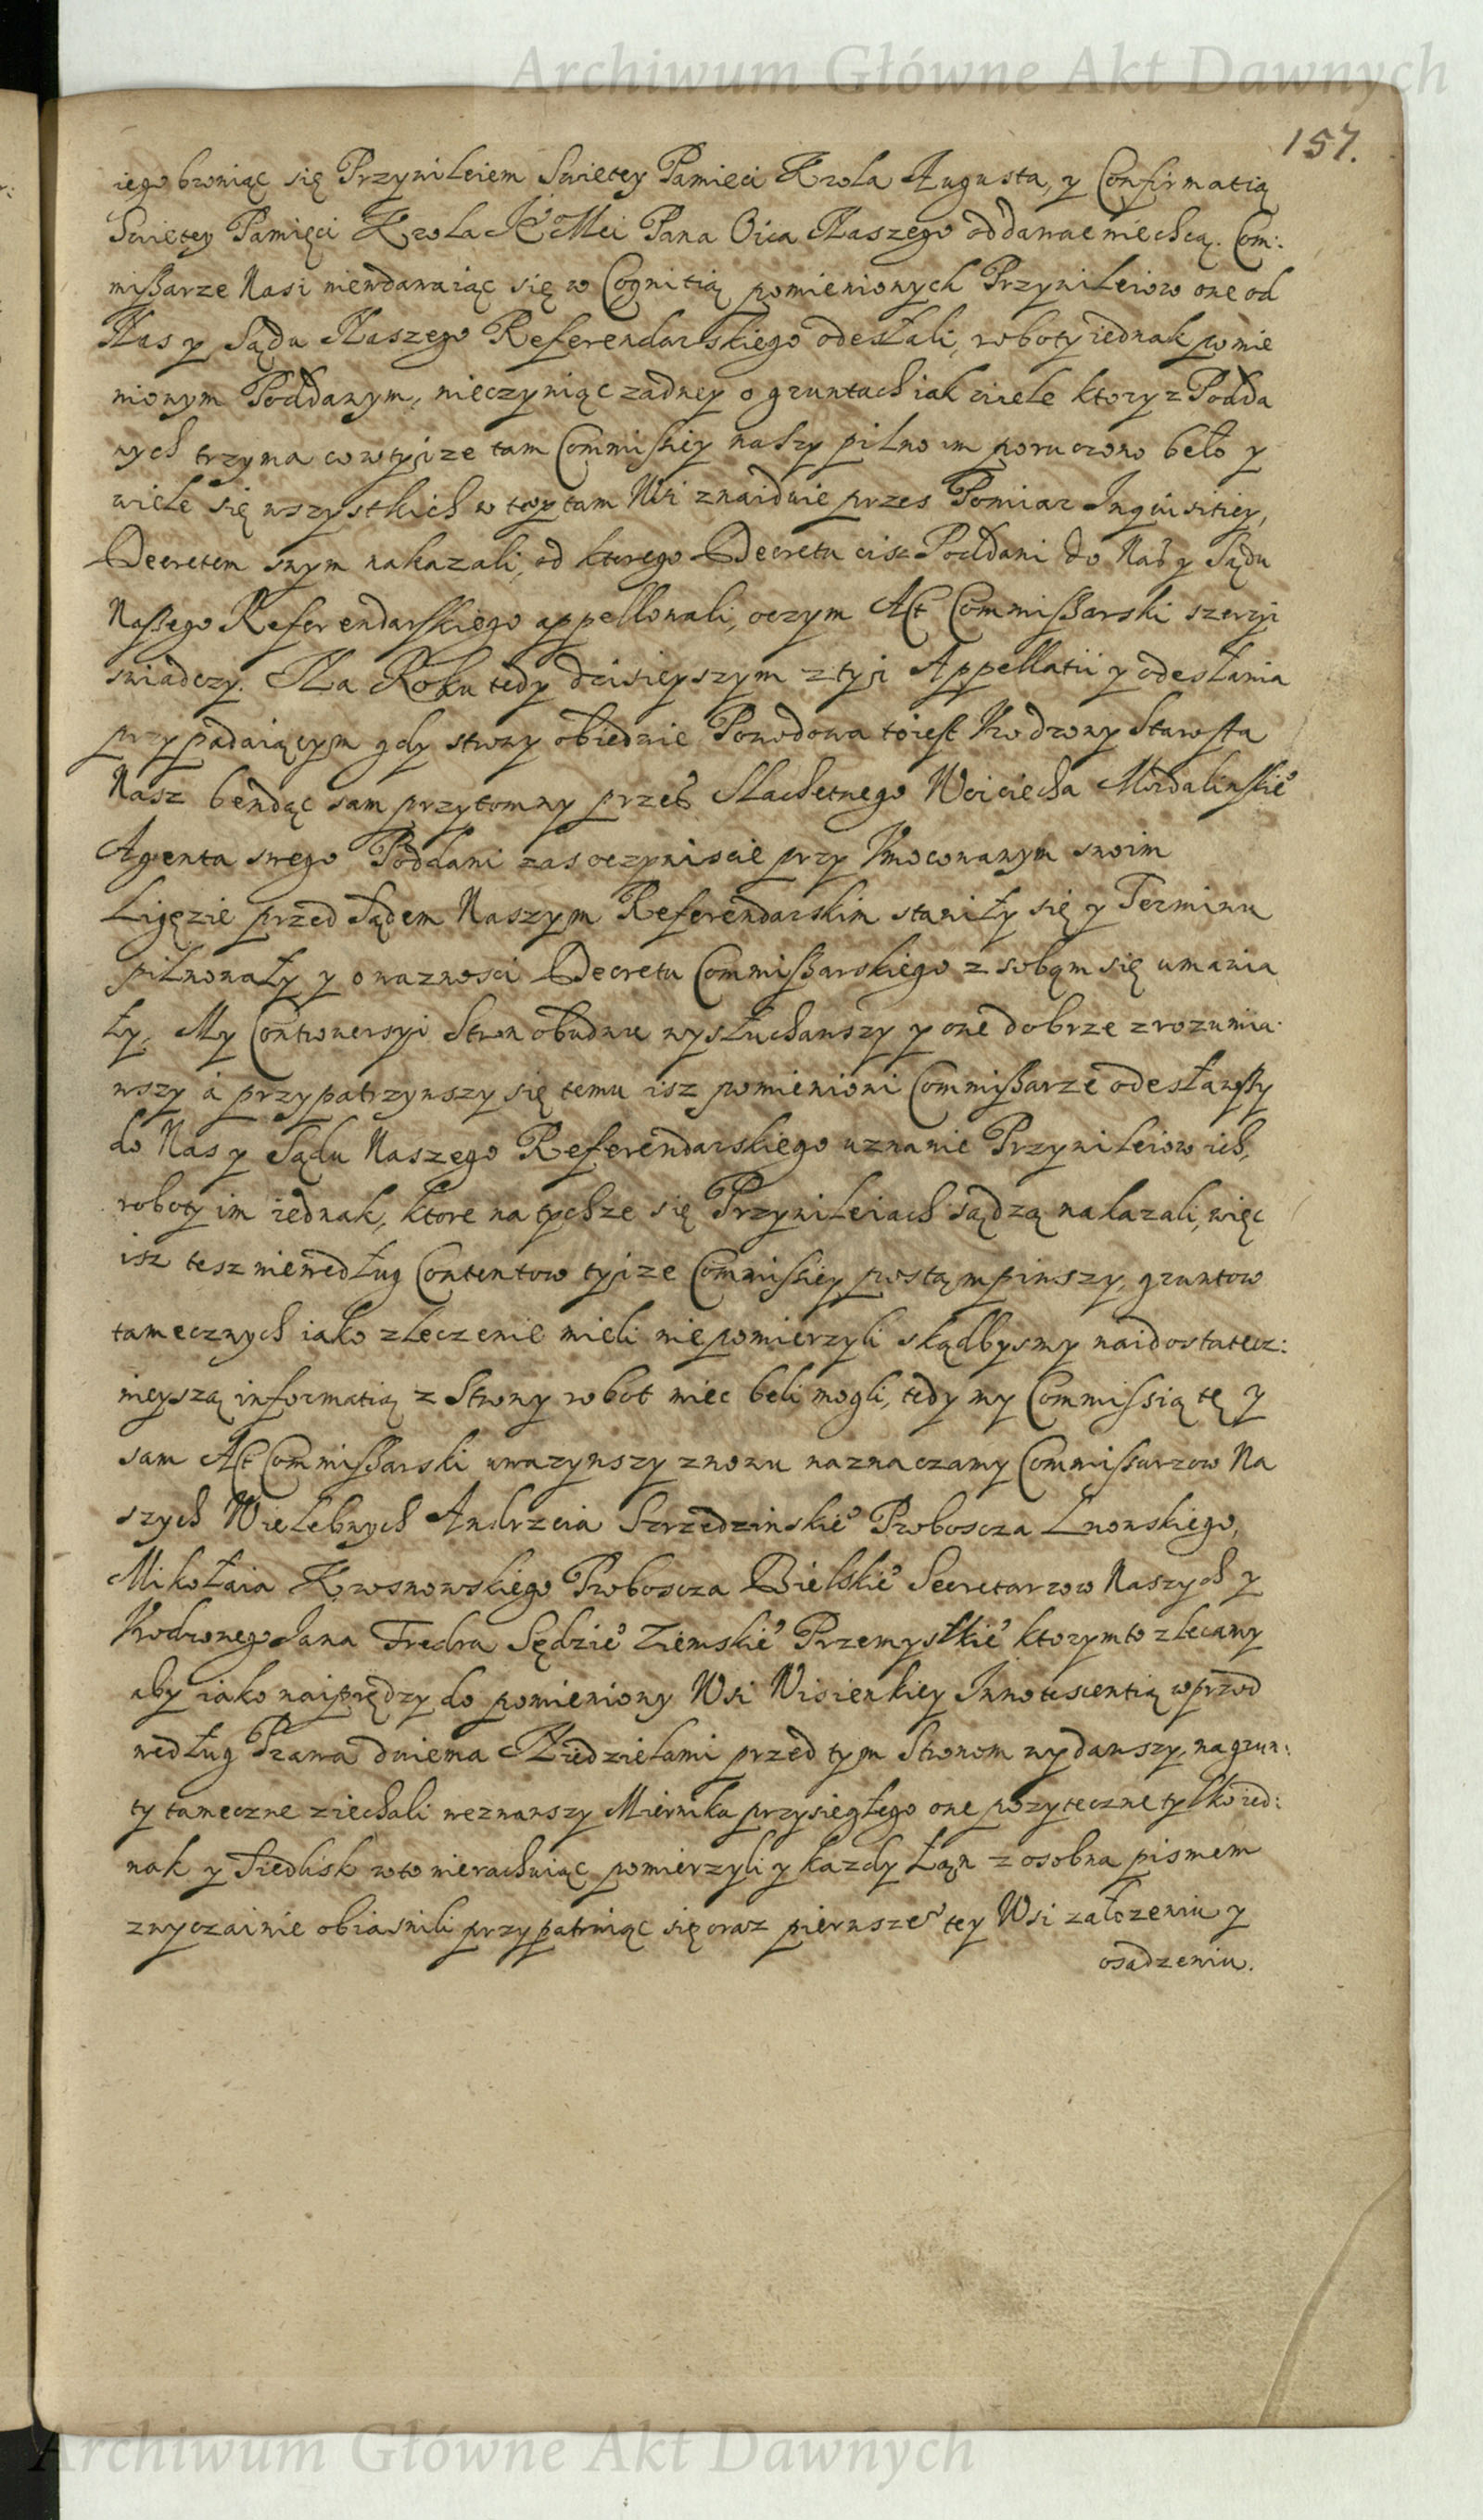 Archiwum Główne Akt Dawnych
157.
iego broniąc się Przywileiem Swietey Pamięci Krola Augusta, y Confirmatią
Swietey Pamięci Krola Je° Mci Pana Oica Naszego oddawać niechcą. Com:
missarze Nasi niewdawaiąc się w Cognitią pomienionych Przywileiow one od
Nas y Sądu Naszego Referendarskiego odesłali, roboty iednak pomie
nionym Poddanym, nieczyniąc zadney o gruntach iak wiele ktory z Podda
nych trzyma co w tyi ze tam Commissiey naszy pilno im poruczono beło y
wiele się wszystkich w tey tam Wsi znaiduie przes Pomiar Inquisitiey,
Decretem swym nakazali, od ktorego Decretu cisz Poddani do Nas y Sądu
Nassego Referendarskiego appellowali, oczym Act Commissarski szerzyi
swiadczy. Na Roku tedy dzisieyszym z tyi Appellatii y odesłania
przypadaiącym gdy strony obiedwie Powodowa toiest Urodzony Starosta
Nasz bendąc sam przytomny przes Slachetnego Woiciecha Modalinskie°
Agenta swego Poddani zas oczywiscie przy Umocowanym swoim
Ligęzie przed Sądem Naszym Referendarskim stawiły się y Terminu
pilnowały y o waznosci Decretu Commissarskiego z sobąm się umawia
ły, My Controwersyi Stron obudwu wysłuchawszy y one dobrze zrozumia
wszy á przypatrzywszy się temu isz pomienioni Commissarze odesławszy
do Nas y Sądu Naszego Referendarskiego uznanie Przywileiow ich,
roboty im iednak, ktore na tychze się Przywileiach sądzą nakazali, więc
isz tesz niewedług Contentow tyize Commissiey postąmpiwszy, gruntow
tamecznych iako zleczenie mieli niepomierzyli skądbysmy naidostatecz:
nieyszą informatią z Strony robot miec beli mogli, tedy my Commissią tę y
sam Act Commissarski uwazywszy znowu naznaczamy Commissarzow Na
szych Wielebnych Andrzeia Szrzedzinskie° Proboscza Lwowskiego,
Mikołaia Krosnowskiego Proboscza Bielskie° Secretarzow Naszych y
Urodzonego Jana Fredra Sędzie° Ziemskie° Przemyslkie° ktorym to zlecamy
aby iako naiprędzy do pomieniony Wsi Wisienkiey Innotescentią wprzod
według Prawa dwiema Niedzielami przed tym Stronom wydawszy, na grun:
ty tameczne ziechali wezwawszy Miernika przysięgłego one pozyteczne tylko ied:
nak y Siedlisk w to nierachuiąc pomierzyli y kazdy Łan z osobna pismem
zwyczainie obiasnili przypatruiąc się oraz pierwsze° tey Wsi załozeniu y
osadzeniu.
Archiwum Główne Akt Dawnych